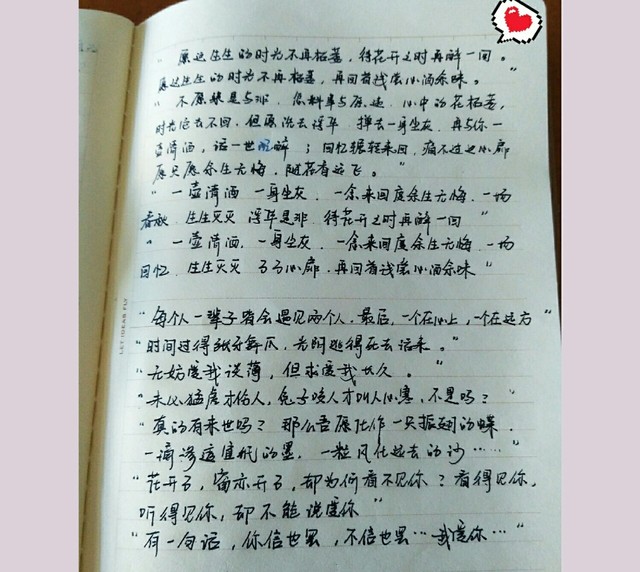 “愿这生生的时光不再枯萎，待花开之时再醉一回。
愿这生生的时光不再枯萎，再回首浅尝心酒余味。
“不愿染是与非，怎料事与愿违，心中的花枯萎，
时光它去不回，但愿洗去浮华，掸去一身尘灰，再与你一
壶清酒，话一世沉醉；回忆辗转来回，痛不过这心扉
愿只愿余生无悔，随花香远飞。
“一壶清酒 一身尘灰 一念来回度余生无悔 一场
春秋 生生灭灭 浮华是非 待花开之时再醉一回”
“一壶清酒 一身尘灰 一念来回度余生无悔 一场
回忆 生生灭灭 了了心扉 再回首浅尝心酒余味”
“每个人一辈子都会遇见两个人，最后，一个在心上，一个在远方”
“时间过得张牙舞爪，光阴逃得死去活来。”
“无妨爱我淡薄，但求爱我长久。”
“未必猛虎才伤人，兔子咬人才叫人心寒，不是吗？”
“真的有来世吗？那么吾愿化作一只振翅的蝶，
一滴渗透宣纸的墨，一粒风化远去的沙……”
“花开了，窗亦开了，却为何看不见你？看得见你，
听得见你，却不能说爱你”
“有一句话，你信也罢，不信也罢…我爱你…”
LET IDEAS FLY